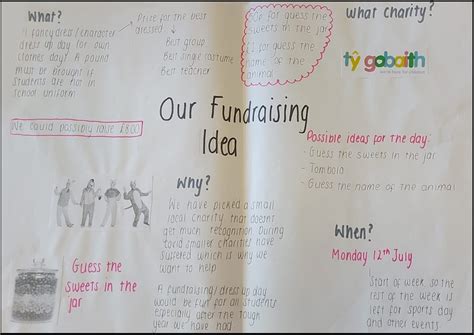 What?
1 fancy dress / character
dress up day (or own
clothes day)! A pound
must be brought if
students are not in
school uniform
Prize for the best
dressed
Best group
Best single costume
Best teacher
50p for guess the
sweets in the jar
£1 for guess the
name of the
animal
What Charity?
tŷ gobaith
We could possibly raise £800
Our Fundraising
Idea
Possible ideas for the day:
- Guess the sweets in the jar
- Tombola
- Guess the name of the animal
Why?
We have picked a small
local charity that doesn't
get much recognition. During
covid smaller charities have
suffered which is why we
want to help
A fundraising/dress up day
would be fun for all students
especially after the tough
year we have had
When?
Monday 12th July
Start of week, so the
rest of the week is
left for sports day
and other events
Guess the
sweets in the
jar